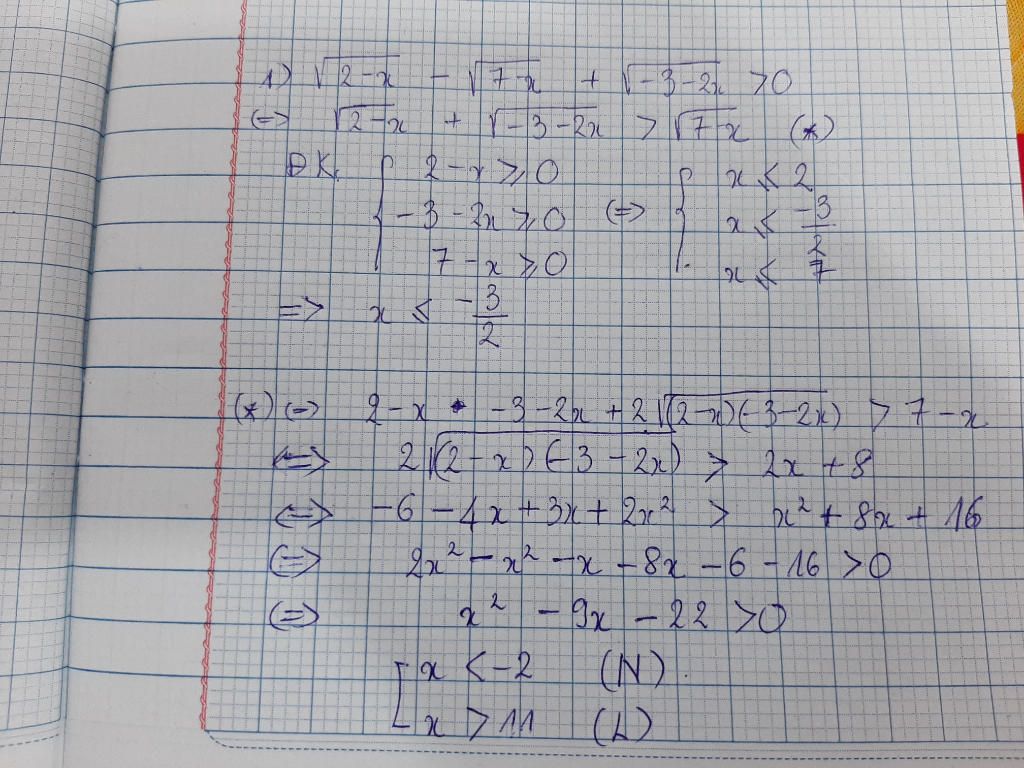 1) √(2-x) - √(7-x) + √(-3-2x) > 0
<=> √(2-x) + √(-3-2x) > √(7-x) (*)
ĐK: { 2-x ⩾ 0 { x ⩽ 2
-3-2x ⩾ 0 <=> x ⩽ -3/2
7-x ⩾ 0 x ⩽ 7
=> x ⩽ -3/2
(*) <=> 2-x -3-2x+2√((2-x)(-3-2x)) > 7-x
<=> 2√((2-x)(-3-2x)) > 2x+8
<=> -6-4x+3x+2x² > x²+8x+16
<=> 2x²-x²-x-8x-6-16 > 0
<=> x²-9x-22 > 0
[ x < -2 (N).
x > 11 (L)